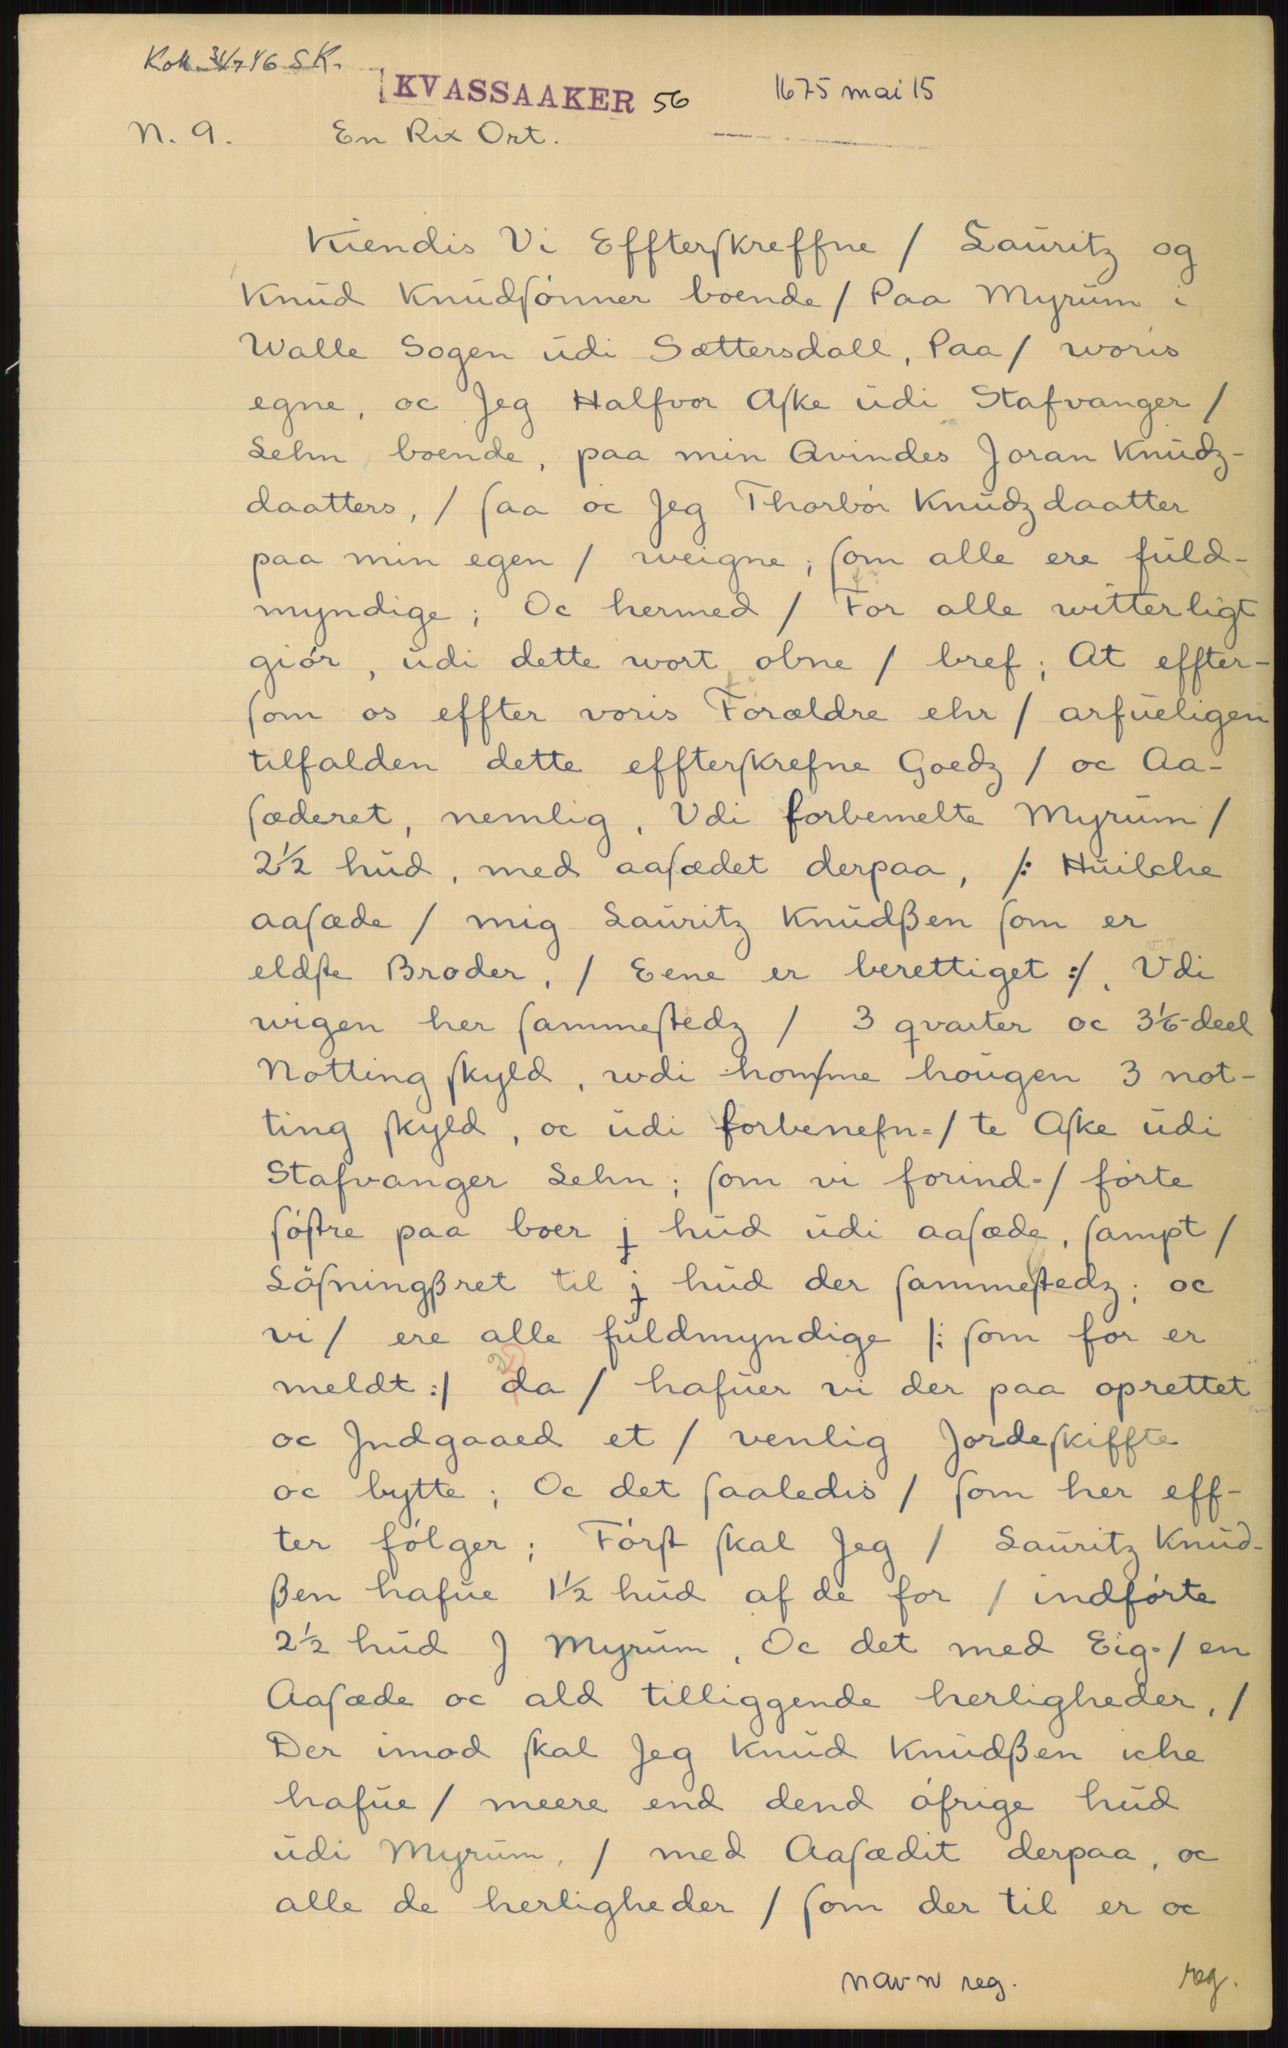 Koll. 31/7 46 SK.
KVASSAAKER 56
1675 mai 15
N. 9. En Rix Ort.
Kiendis Vi Effterſkreffne / Lauritz og
Knud Knudſønner boende / Paa Myrum i
Walle Sogen udi Sættersdall, Paa / woris
egne, oc Jeg Halfvor Aſke udi Stafvanger /
Lehn boende, paa min Qvindes Joran Knudz-
daatters, / ſaa oc Jeg Thorbør Knudzdaatter
paa min egen / weigne; ſom alle ere fuld-
myndige; Oc hermed / For alle witterligt
giør, udi dette wort obne / bref; At effter-
ſom os effter voris Forældre ehr / arfueligen
tilfalden dette effterſkrefne Goedz / oc Aa-
ſæderet, nemlig, Udi forbemelte Myrum /
2½ hud, med aaſædet derpaa, /: Huilche
aaſæde / mig Lauritz Knudßen ſom er
eldſte Broder, / Eene er berettiget :/, Udi
wigen her ſammeſtedz / 3 qvarter oc 3⅙-deel
Notting ſkyld, wdi hom/me hougen 3 not-
ting ſkyld, oc udi forbenefn=/te Aſke udi
Stafvanger Lehn; ſom vi forind-/førte
ſøſtre paa boer j hud udi aaſæde, ſampt /
Løſningßret til j hud der ſammeſtedz; oc
vi / ere alle fuldmyndige /: ſom for er
meldt :/ da / hafuer vi der paa oprettet
oc Jndgaaed et / venlig Jordeſkiffte
oc bytte; Oc det ſaaledis / ſom her eff-
ter følger; Førſt ſkal Jeg / Lauritz Knud-
ßen hafue 1½ hud af de for / indførte
2½ hud J Myrum, Oc det med Eig=/en
Aaſæde oc ald tilliggende herligheder, /
Der imod ſkal Jeg Knud Knudßen iche
hafue / meere end dend øfrige hud
udi Myrum, / med Aaſædit derpaa, oc
alle de herligheder / ſom der til er oc
navn reg. reg.